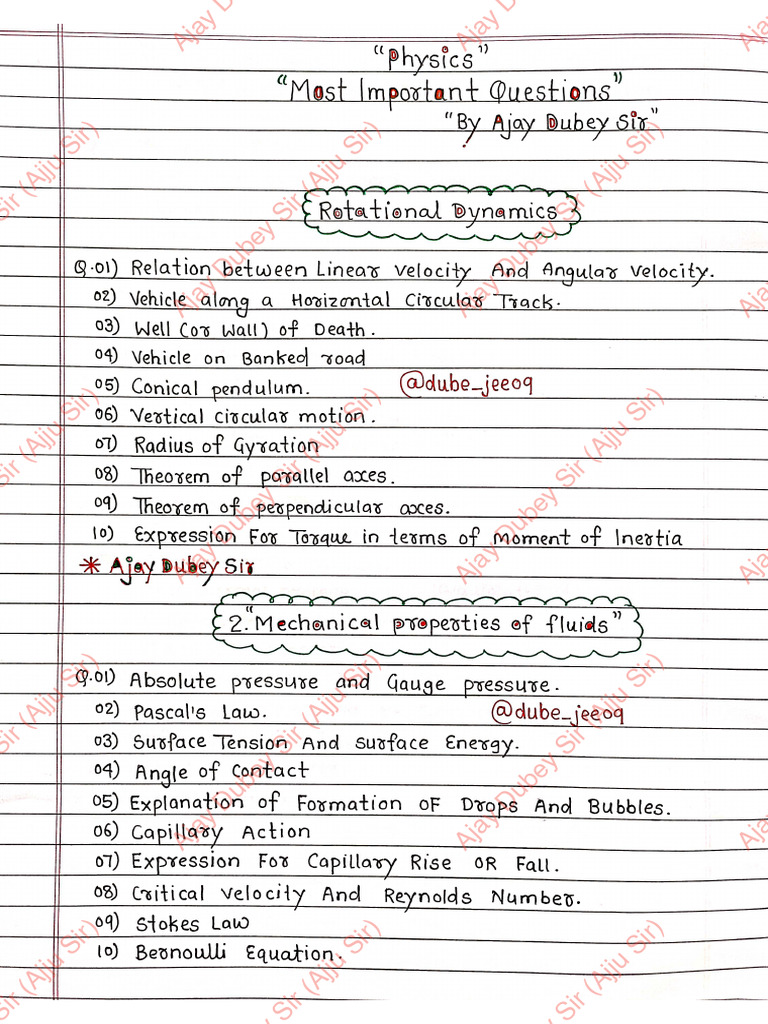 "Physics"
"Most Important Questions"
"By Ajay Dubey Sir"
Rotational Dynamics
Q.01) Relation between Linear velocity And Angular velocity.
02) Vehicle along a Horizontal Circular Track.
03) Well (or Wall) of Death.
04) Vehicle on Banked road
05) Conical pendulum. @dube_jee09
06) Vertical circular motion.
07) Radius of Gyration
08) Theorem of parallel axes.
09) Theorem of perpendicular axes.
10) Expression For Torque in terms of moment of Inertia
* Ajay Dubey Sir
2."Mechanical properties of fluids"
Q.01) Absolute pressure and Gauge pressure.
02) Pascal's Law. @dube_jee09
03) Surface Tension And surface Energy.
04) Angle of contact
05) Explanation of Formation OF Drops And Bubbles.
06) Capillary Action
07) Expression For Capillary Rise OR Fall.
08) Critical velocity And Reynolds Number.
09) Stokes Law
10) Bernoulli Equation.
Ajay Dubey Sir (Ajju Sir)